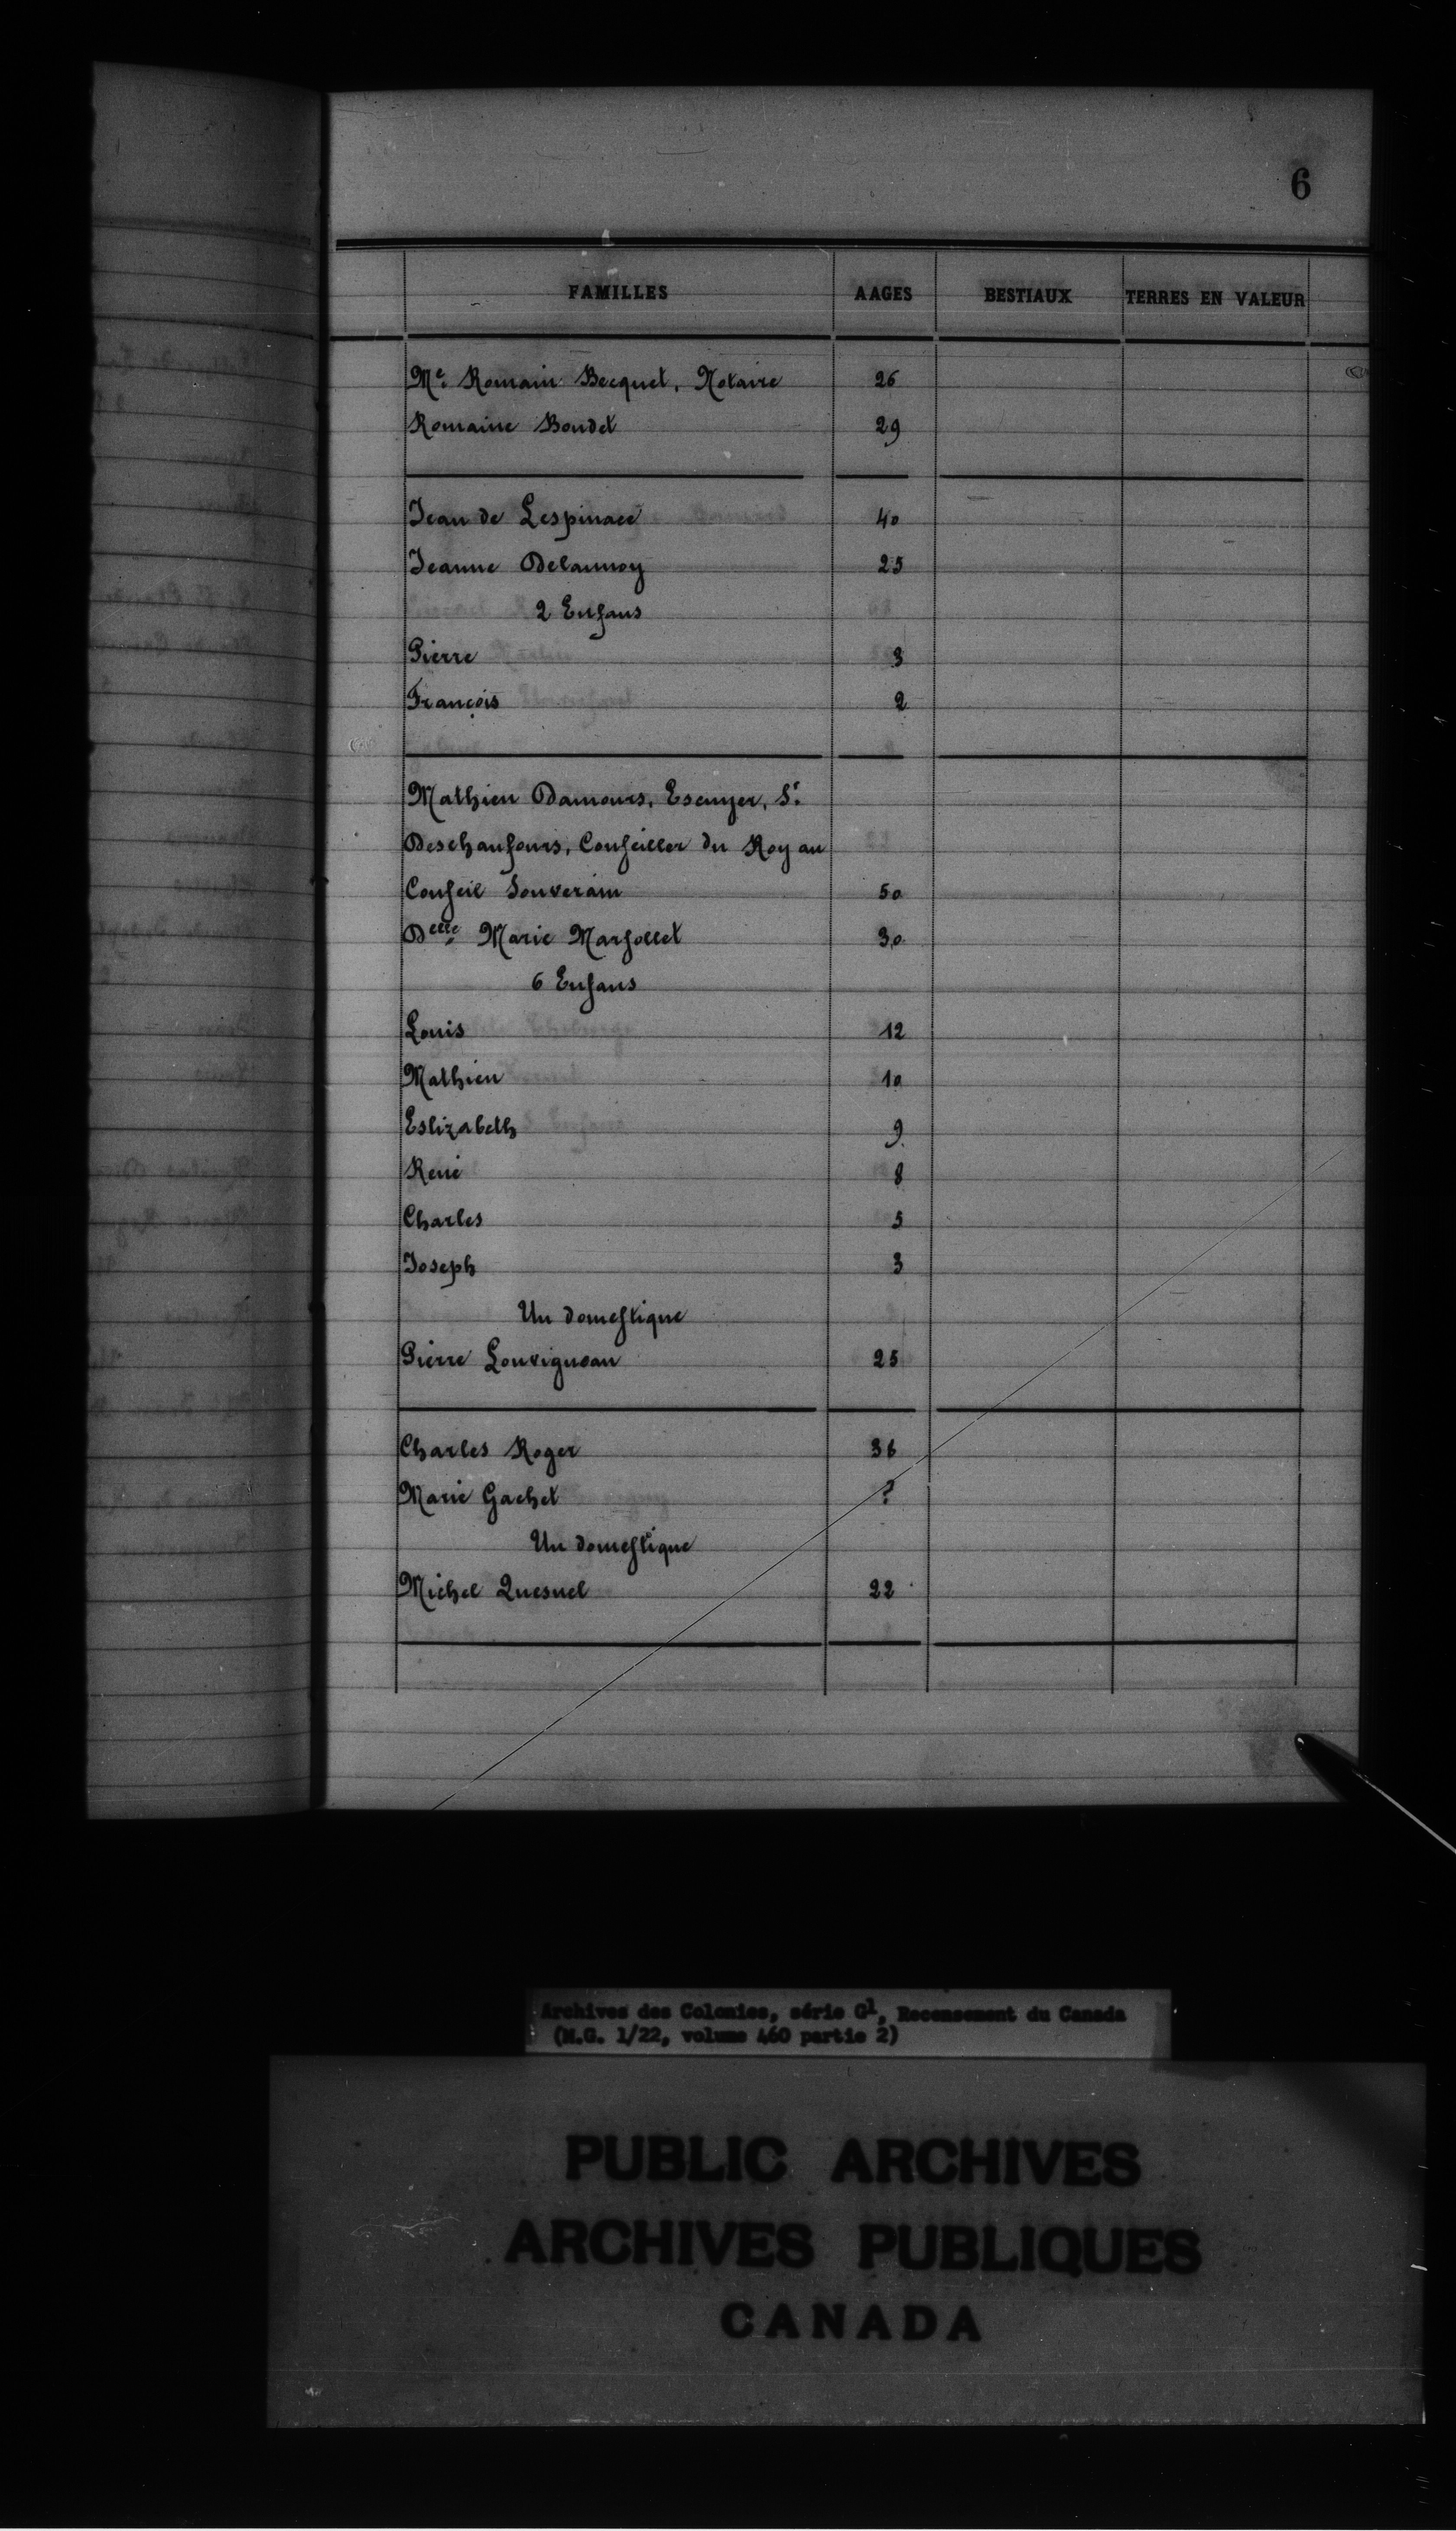 6
FAMILLES AAGES BESTIAUX TERRES EN VALEUR
Me. Romain Becquet, Notaire 26
Romaine Boudet 29
Jean de Lespinace 40
Jeanne Delaunoy 25
2 Enfans
Pierre 3
François 2
Mathieu Damours, Escuyer, Sr.
Deschaufours, Conseiller du Roy au
Conseil Souverain 50
Delle. Marie Marsollet 30
6 Enfans
Louis 12
Mathieu 10
Eslizabeth 9
René 8
Charles 5
Joseph 3
Un domestique
Pierre Louvigneau 25
Charles Roger 36
Marie Gachet ?
Un domestique
Michel Quesnel 22
Archives des Colonies, série G1, Recensement du Canada
(M.G. 1/22, volume 460 partie 2)
PUBLIC ARCHIVES
ARCHIVES PUBLIQUES
CANADA